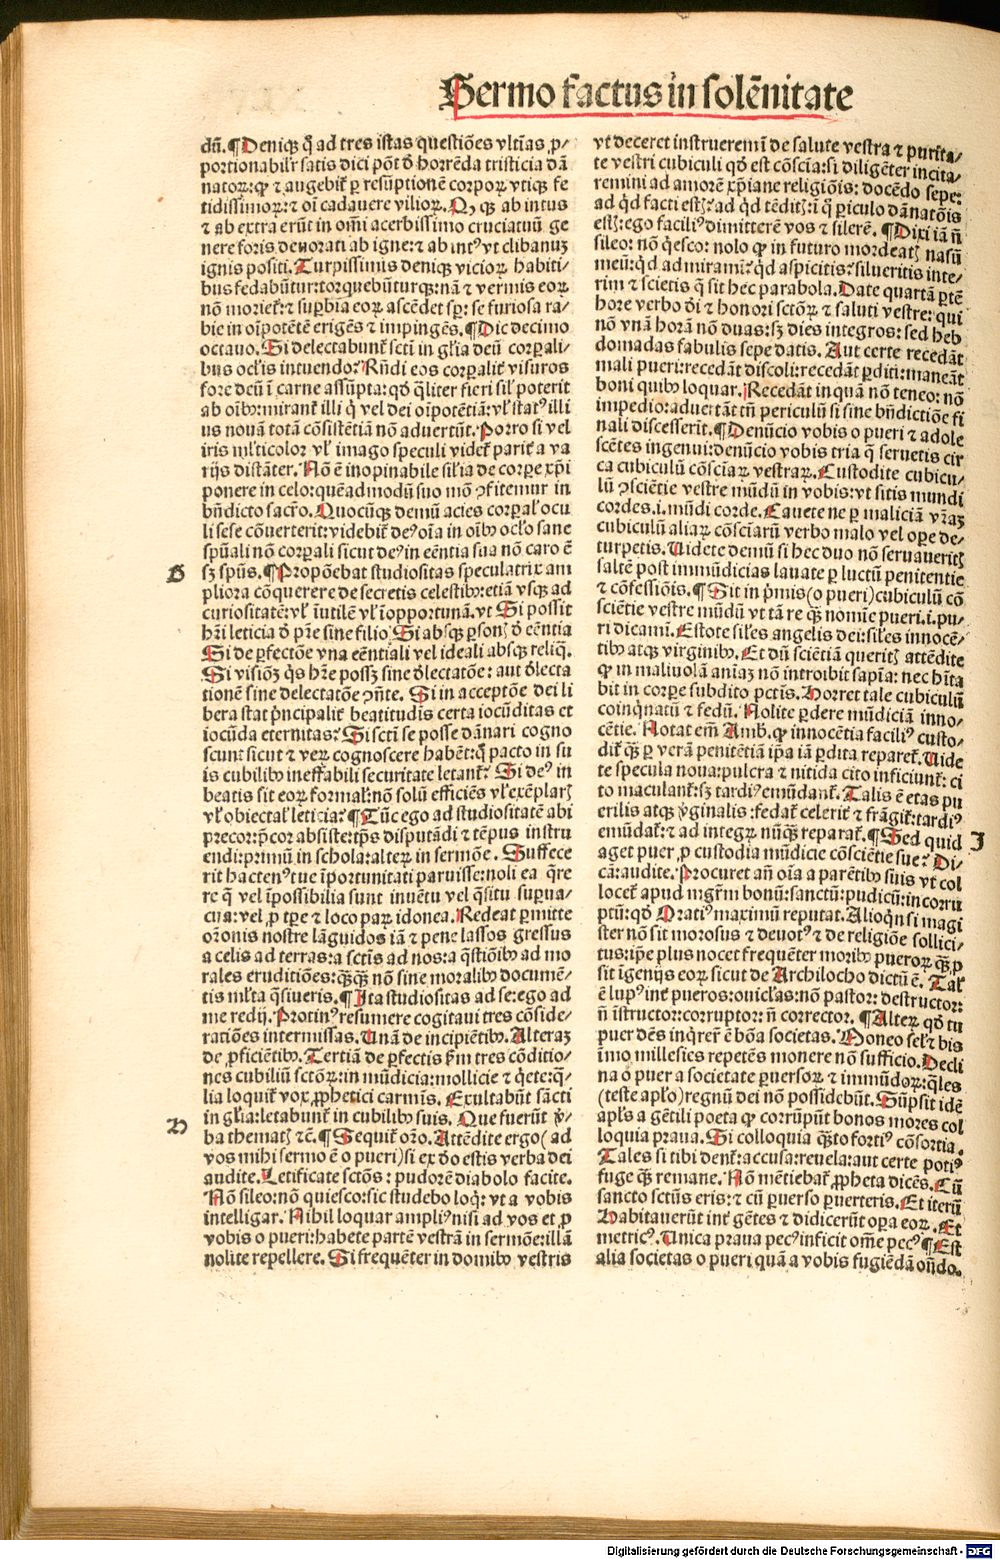 Sermo factus in solēnitate
dū. ¶ Deniqꝫ ꝙ ad tres istas questiōes vltīas ꝓ/
portionabilr̄ satis dici pōt ď horrēda tristicia dā
natoꝝ: ꝙ ⁊ augebit̃ ꝑ resūptionē corpoꝝ vtiqꝫ fe
tidissimoꝝ: ⁊ oī cadauere vilioꝝ. Q, qꝫ ab intus
⁊ ab extra erūt in om̄i acerbissimo cruciatuū ge
nere foris deuorati ab igne: ⁊ ab intꝰ vt clibanus
ignis positi. Turpissimis deniqꝫ vicioꝝ habiti/
bus fedabūtur: torquebūturqꝫ: nā ⁊ vermis eoꝝ
nō moriet̃: ⁊ suꝑbia eoꝝ ascēdet sꝑ: se furiosa ra/
bie in oīpotētē erigēs ⁊ impingēs. ¶ Dic decimo
octauo. Si delectabunt̃ scti in gl̄ia deū corꝑali/
bus ocl̄is intuendo? Rn̄di eos corꝑalit̃ visuros
fore deū ī carne assūpta: qď qͥliter fieri sil̃ poterit
ab oībꝰ: mirant̃ illi qͥ vel dei oīpotētiā: vl̃ statꝰ illi
ius nouā totā cōsistētiā nō aduertūt. Porro si vel
iris ml̃ticolor vl̃ imago speculi videt̃ parit̃ a va
rijs distāter. Nō ē inopinabile sil̃ia de corꝑe xp̄i
ponere in celo: quēadmodū suo mō ꝯfitemur in
bn̄dicto sacr̄o. Quocūqꝫ demū acies corꝑal̃ ocu
li sese cōuerterit: videbit̃ deꝰ oīa in oībꝰ ocl̃o sane
spūali nō corꝑali sicut deꝰ in eēntia sua nō caro ē
G
sꝫ spūs. ¶ Propōebat studiositas speculatrix am
pliora cōquerere de secretis celestibꝰ: etiā vsqꝫ ad
curiositatē: vl̃ īutilē vl̃ īopportunā. vt Si possit
hr̄i leticia ď pr̄e sine filio. Si absqꝫ ꝑsonꝭ ď eēntia
Si de ꝑfectōe vna eēntiali vel ideali absqꝫ reliq̄.
Si visiōꝫ qͥs hr̄e possꝫ sine ďlectatōe: aut ďlecta
tionē sine delectatōe ꝯn̄te. Si in acceptōe dei li
bera stat pͥncipalit̃ beatitudis certa iocūditas et
iocūda eternitas? Si scti se posse dānari cogno
scunt: sicut ⁊ veꝝ cognoscere habēt: qͦ pacto in su
is cubilibꝰ ineffabili securitate letant̃? Si deꝰ in
beatis sit eoꝝ formal̃: nō solū efficiēs vl̃ exēplarꝭ
vl̃ obiectal̃ leticia? ¶ Tūc ego ad studiositatē abi
precor: p̄cor absiste: tp̄s disputādi ⁊ tēpus instru
endi: prmū in schola: alteꝝ in sermōe. Suffece
rit hactenꝰ tue īportunitati paruisse: noli ea q̄re
re q̄ vel īpossibilia sunt inuētu vel q̄situ suꝑua/
cua: vel ꝓ tꝑe ⁊ loco paꝝ idonea. Redeat ꝑmitte
or̄onis nostre lāguidos iā ⁊ pene lassos gressus
a celis ad terras: a sctis ad nos: a q̄stiōibꝰ ad mo
rales eruditiōes: qͣsqꝫ nō sine moralibꝰ documē/
tis ml̃ta q̄siueris. ¶ Ita studiositas ad se: ego ad
me redij. Protinꝰ resumere cogitaui tres cōside/
ratiōes intermissas. Unā de incipiētibꝰ. Alteraꝫ
de ꝓficiētibꝰ. Tertiā de ꝑfectis ẜm tres cōditio/
nes cubiliū sctōꝝ: in mūdicia: mollicie ⁊ qͥete: q̄/
lia loquit̃ vox ꝓphetici carmīs. Exultabūt sācti
in gl̄ia: letabunt̃ in cubilibꝰ suis. Que fuerūt v̓/
H
ba thematꝭ ⁊c̄. ¶ Sequit̃ or̄o. Attēdite ergo (ad
vos mihi sermo ē o pueri) si ex ďo estis verba dei
audite. Letificate sctōs: pudorē diabolo facite.
Nō sileo: nō quiesco: sic studebo loqͥ: vt a vobis
intelligar. Nihil loquar ampliꝰ nisi ad vos et ꝓ
vobis o pueri: habete partē vestrā in sermōe: illā
nolite repellere. Si frequēter in domibꝰ vestris
vt deceret instrueremī de salute vestra ⁊ purita/
te vestri cubiculi qď est cōscīa: si diligēter incita/
remini ad amorē xp̄iane religiōis: docēdo sepe:
ad qͥd facti estꝭ: ad qͥd tēditꝭ: ī qͦ ꝑiculo dānatōis
estꝭ: ego faciliꝰ dimitterē vos ⁊ silerē. ¶ Dixi iā n̄
sileo: nō q̓esco: nolo ꝙ in futuro mordeatꝭ nasū
meū: qͥd admiramī: qͥd aspicitis? silueritis inte/
rim ⁊ scietis q̄ sit hec parabola. Date quartā ꝑtē
hore verbo ďi ⁊ honori sctōꝝ ⁊ saluti vestre: qui
nō vnā horā nō duas: sꝫ dies integros: sed heb
domadas fabulis sepe datis. Aut certe recedāt
mali pueri: recedāt discoli: recedāt ꝑditi: maneāt
boni quibꝰ loquar. Recedāt inquā nō teneo: nō
impedio: aduertāt tn̄ periculū si sine bn̄dictiōe fi
nali discesserit. ¶ Denūcio vobis o pueri ⁊ adole
scētes ingenui: denūcio vobis tria q̄ seruetis cir
ca cubiculū cōsciaꝝ vestraꝝ. Custodite cubicu/
lū ꝯsciētie vestre mūdū in vobis: vt sitis mundi
cordes .i. mūdi corde. Cauete ne ꝑ maliciā vr̄aꝫ
cubiculū aliaꝝ cōscīarū verbo malo vel oꝑe de/
turpetis. Uidete demū si hec duo nō seruaueritꝭ
saltē post immūdicias lauate ꝑ luctū penitentie
⁊ cōfessiōis. ¶ Sit in pͥmis (o pueri) cubiculū cō
sciētie vestre mūdū vt tā re qͣꝫ nomīe pueri .i. pu/
ri dicamī. Estote sil̃es angelis dei: sil̃es innocē/
tibꝰ atqꝫ virginibꝰ. Et dū sciētiā queritꝭ attēdite
ꝙ in maliuolā aniaꝫ nō introibit sapīa: nec hīta
bit in corꝑe subdito pctīs. Horret tale cubiculū
coinqͥnatū ⁊ fedū. Nolite ꝑdere mūdiciā inno/
cētie. Notat em̄ Amb. ꝙ innocētia faciliꝰ custo/
dit̃ qͣꝫ ꝑ verā penitētiā ip̄a iā ꝑdita reparet̃. Uide
te specula noua: pulcra ⁊ nitida cito inficiunt̃: ci
to maculant̃: sꝫ tardiꝰ emūdant̃. Talis ē etas pu
erilis atqꝫ v̓ginalis: fedat̃ celerit̃ ⁊ frāgit̃: tardiꝰ
emūdat̃: ⁊ ad integꝝ nūqͣꝫ reparat̃. ¶ Sed quid
I
aget puer ꝓ custodia mūdicie cōsciētie sue? Di/
cā: audite. Procuret an̄ oīa a parētibꝰ suis vt col
locet̃ apud mgr̄m bonū: sanctū: pudicū: incorru
ptū: qď Oratiꝰ maximū reputat. Alioqͥn si magi
ster nō sit morosus ⁊ deuotꝰ ⁊ de religiōe sollici/
tus: ip̄e plus nocet frequēter moribꝰ pueroꝝ qͣꝫ ꝓ
sit igenijs eoꝝ sicut de Archilocho dictū ē. Tal̃
ē lupꝰ int̃ pueros: ouicl̃as: nō pastor: destructor:
n̄ īstructor: corruptor: n̄ corrector. ¶ Alteꝝ qď tu
puer dēs inqͥrer̃ ē bōa societas. Moneo sel̃ ⁊ bis
īmo millesies repetēs monere nō sufficio. Decli
na o puer a societate ꝑuersoꝝ ⁊ immūdoꝝ: qͥles
(teste apl̃o) regnū dei nō possidebūt. Sūpsit idē
apl̃s a gētili poeta ꝙ corrūpūt bonos mores col
loquia praua. Si colloquia qͣꝫto fortiꝰ cōsortia.
Tales si tibi dent̃: accusa: reuela: aut certe potiꝰ
fuge qͣꝫ remane. Nō mētiebat̃ ꝓpheta dicēs. Cū
sancto sctūs eris: ⁊ cū ꝑuerso ꝑuerteris. Et iterū
Habitauerūt int̃ gētes ⁊ didicerūt oꝑa eoꝝ. Et
metricꝰ. Unica praua pecꝰ inficit om̄e pecꝰ ¶ Est
alia societas o pueri quā a vobis fugiēdā on̄do.
Digitalisierung gefördert durch die Deutsche Forschungsgemeinschaft - DFG